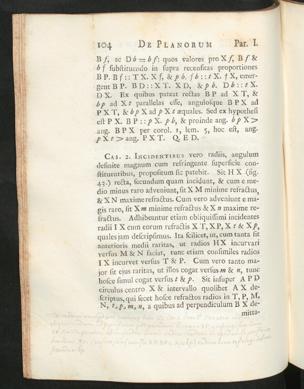 104 DE PLANORUM Par. I.
B f, ac D b = b f: quos valores pro X f, B f &
b f substituendo in supra recensitas proportiones
BP. B f :: TX. X f, & p b. f b :: t X. f X, emer-
gent BP. BD :: XT. XD, & p b. D b :: t X.
DX. Ex quibus patent rectas BP ad XT, &
b p ad X t parallelas esse, angulosque BPX ad
PXT, & b p X ad p X t æquales. sed ex hypothesi
est PX. BP :: p X. p b, & proinde ang. b p X >
ang. BPX per corol. 1, lem. 5, hoc est, ang.
p X t > ang. PXT. Q. E. D.
CAS. 2. INCIDENTIBUS vero radiis, angulum
definite magnum cum refringente superficie con-
stituentibus, propositum sic patebit. Sit HX (fig.
43.) recta, secundum quam incidunt, & cum e me-
dio minus raro adveniunt, sit XM minime refractus,
& XN maxime refractus. Cum vero adveniunt e ma-
gis raro, sit X m minime refractus & X n maxime re-
fractus. Adhibeantur etiam obliquissimi incidentes
radii IX cum eorum refractis XT, XP, X t & X p,
quales jam descripsimus. Ita scilicet, ut, cum tanta sit
anterioris medii raritas, ut radios HX incurvari
versus M & N faciat, tunc etiam consimiles radios
IX incurvet versus T & P. Cum vero tanto ma-
jor sit ejus raritas, ut illos cogat versus m & n, tunc
hosce simul cogat versus t & p. Sit insuper APD
circulus centro X & intervallo quolibet AX de-
scriptus, qui secet hosce refractos radios in T, P, M,
N, t, p, m, n, a quibus ad perpendiculum BX de-
mitta-